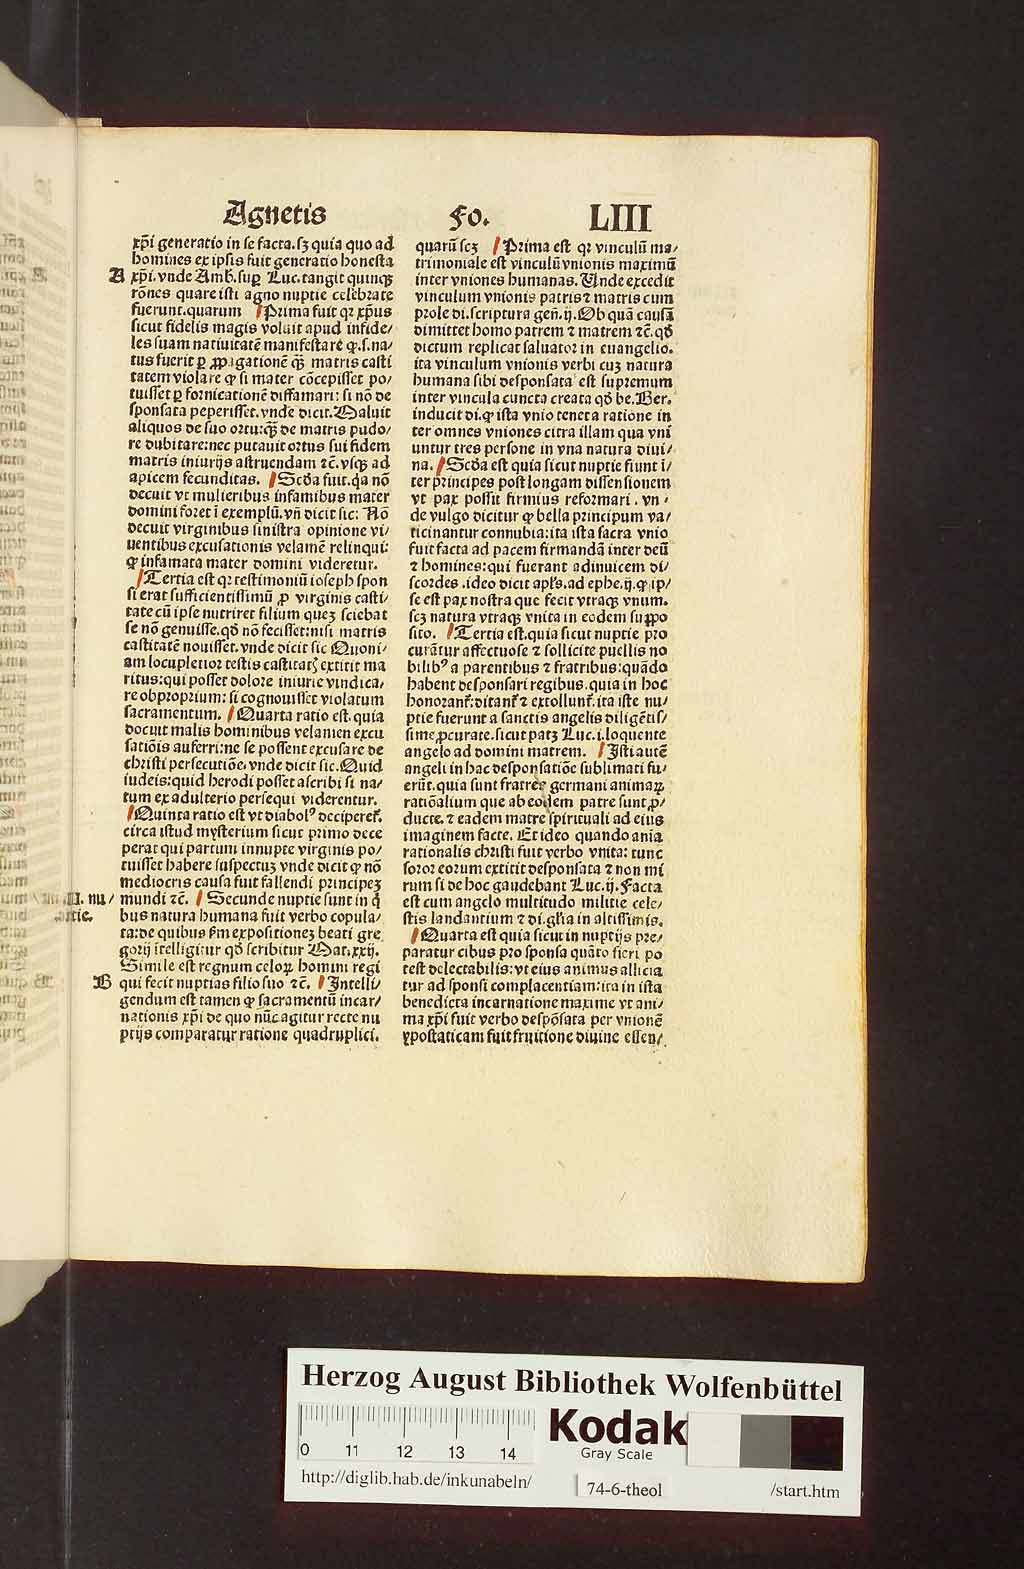 Agnetis Fo. LIII
xp̄i generatio in se facta. sꝫ quia quo ad
homines ex ipsis fuit generatio honesta
A xp̄i. vnde Amb. suꝑ Luc. tangit quinqꝫ
rōnes quare isti agno nuptie celebrate
fuerunt. quarum Prima fuit qꝛ xp̄us
sicut fidelis magis voluit apud infide/
les suam natiuitatē manifestare ꝙ .s. na/
tus fuerit ꝑ ꝓpagationē qꝫ̄ matris casti
tatem violare ꝙ si mater cōcepisset po/
tuisset ꝑ fornicationē diffamari: si nō de
sponsata peperisset. vnde dicit. Maluit
aliquos de suo ortu: qꝫ̄ de matris pudo/
re dubitare: nec putauit ortus sui fidem
matris iniurijs astruendam ⁊c̄. vsqꝫ ad
apicem fecunditas. Scd̄a fuit. q̄a nō
decuit vt mulieribus infamibus mater
domini foret ī exemplū. vn̄ dicit sic: Nō
decuit virginibus sinistra opinione vi/
uentibus excusationis velamē relinqui:
ꝙ infamata mater domini videretur.
Tertia est qꝛ testimoniū ioseph spon
si erat sufficientissimū ꝓ virginis casti/
tate cū ipse nutriret filium quez sciebat
se nō genuisse. qd̄ nō fecisset: nisi matris
castitatē nouisset. vnde dicit sic Quoni/
am locupletior testis castitatꝭ extitit ma
ritus: qui posset dolore iniurie vindica/
re obproprium: si cognouisset violatum
sacramentum. Quarta ratio est. quia
docuit malis hominibus velamen excu
satiōis auferri: ne se possent excusare de
christi persecutiōe. vnde dicit sic. Quid
iudeis: quid herodi posset ascribi si na/
tum ex adulterio persequi viderentur.
Quinta ratio est vt diabolꝰ deciperet̄.
circa istud mysterium sicut primo dece
perat qui partum innupte virginis po/
tuisset habere suspectuꝫ vnde dicit ꝙ nō
mediocris causa fuit fallendi principeꝫ
mundi ⁊c̄. Secunde nuptie sunt in q̄
bus natura humana fuit verbo copula/
ta: de quibus fm̄ expositionez beati gre
gorij ītelligitur qd̄ scribitur Mat. xxij.
Simile est regnum celoꝝ homini regi
B qui fecit nuptias filio suo ⁊c̄. Intelli/
gendum est tamen ꝙ sacramentū incar/
nationis xp̄i de quo nūc agitur recte nu
ptijs comparatur ratione quadruplici.
quarū scꝫ Prima est qꝛ vinculū ma/
trimoniale est vinculū vnionis maximū
inter vniones humanas. Unde excedit
vinculum vnionis patris ⁊ matris cum
prole di. scriptura gen̄. ij. Ob quā causā
dimittet homo patrem ⁊ matrem ⁊c̄. qd̄
dictum replicat saluator in euangelio.
ita vinculum vnionis verbi cuꝫ natura
humana sibi desponsata est supremum
inter vincula cuncta creata qd̄ be. Ber.
inducit di. ꝙ ista vnio teneta ratione in
ter omnes vniones citra illam qua vni
untur tres persone in vna natura diui/
na. Scd̄a est quia sicut nuptie fiunt i/
ter principes post longam dissensionem
vt pax possit firmius reformari. vn/
de vulgo dicitur ꝙ bella principum va/
ticinantur connubia: ita ista sacra vnio
fuit facta ad pacem firmandā inter deū
⁊ homines: qui fuerant adinuicem di/
scordes. ideo dicit apl̄s. ad ephe. ij. ꝙ ip/
se est pax nostra que fecit vtraqꝫ vnum.
scꝫ natura vtraqꝫ vnita in eodem suppo
sito. Tertia est. quia sicut nuptie pro
curātur affectuose ⁊ sollicite puellis no
bilibꝰ a parentibus ⁊ fratribus: quādo
habent desponsari regibus. quia in hoc
honorant̄: ditant̄ ⁊ extollunt̄. ita iste nu/
ptie fuerunt a sanctis angelis diligētis/
sime ꝓcurate. sicut patꝫ Luc. i. loquente
angelo ad domini matrem. Isti autē
angeli in hac desponsatiōe sublimati fu/
erūt. quia sunt fratres germani animaꝝ
ratiōalium que ab eodem patre sunt ꝓ/
ducte. ⁊ eadem matre spirituali ad eius
imaginem facte. Et ideo quando anīa
rationalis christi fuit verbo vnita: tunc
soror eorum extitit desponsata ⁊ non mi
rum si de hoc gaudebant Luc. ij. Facta
est cum angelo multitudo militie cele/
stis laudantium ⁊ di. gl̄ia in altissimis.
Quarta est quia sicut in nuptijs pre/
paratur cibus pro sponsa quāto fieri po
test delectabilis: vt eius animus allicia
tur ad sponsi complacentiam: ita in ista
benedicta incarnatione maxime vt ani/
ma xp̄i fuit verbo despōsata per vnionē
ypostaticam fuit fruitione diuine essen/
Herzog August Bibliothek Wolfenbüttel
0 11 12 13 14
Kodak
Gray Scale
http://diglib.hab.de/inkunabeln/
74-6-theol
/start.htm